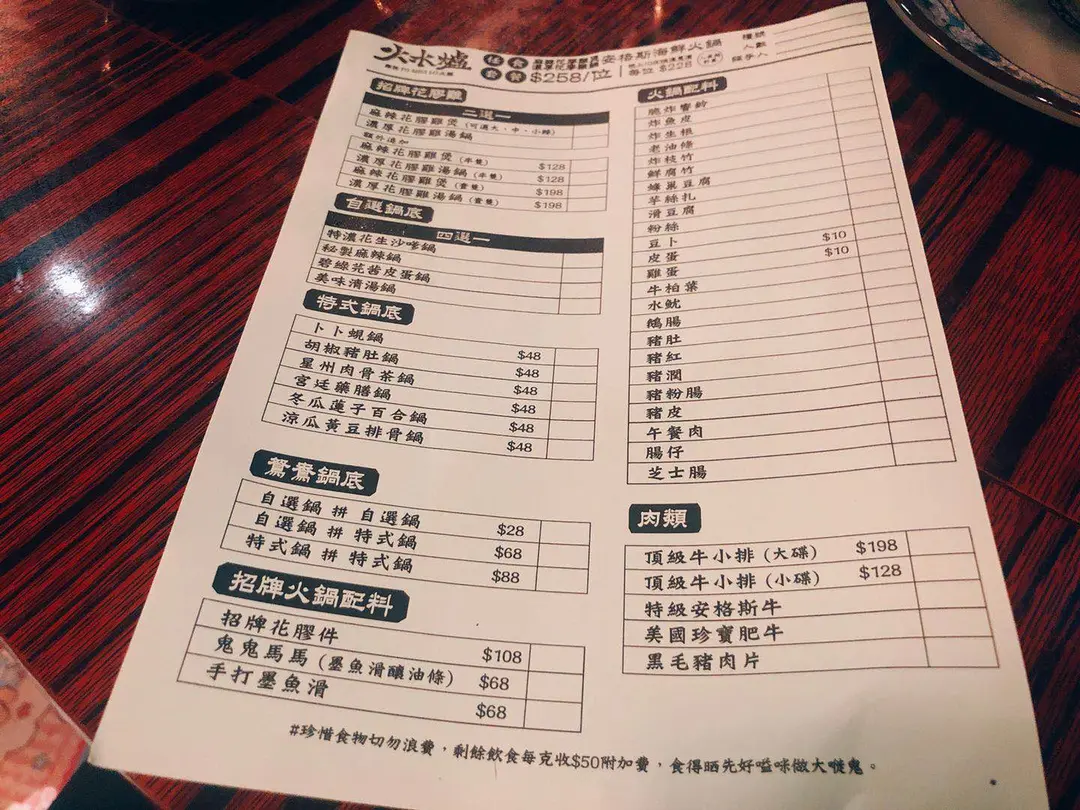 火水爐
任食套餐 安格斯海鮮火鍋
$258/位 每位$228
檯號
人數
經手人
招牌花膠雞
二選一
麻辣花膠雞煲 (可選大、中、小辣)
濃厚花膠雞湯鍋
額外追加
麻辣花膠雞煲 (半隻) $128
濃厚花膠雞湯鍋 (半隻) $128
麻辣花膠雞煲 (壹隻) $198
濃厚花膠雞湯鍋 (壹隻) $198
自選鍋底
四選一
特濃花生沙嗲鍋
秘製麻辣鍋
碧綠芫茜皮蛋鍋
美味清湯鍋
特式鍋底
卜卜蜆鍋 $48
胡椒豬肚鍋 $48
星州肉骨茶鍋 $48
宮廷藥膳鍋 $48
冬瓜蓮子百合鍋 $48
涼瓜黃豆排骨鍋 $48
鴛鴦鍋底
自選鍋 拼 自選鍋 $28
自選鍋 拼 特式鍋 $68
特式鍋 拼 特式鍋 $88
招牌火鍋配料
招牌花膠件 $108
鬼鬼馬馬 (墨魚滑釀油條) $68
手打墨魚滑 $68
火鍋配料
脆炸響鈴
炸魚皮
炸生根
老油條
炸枝竹
鮮腐竹
蜂巢豆腐
芋絲扎
滑豆腐
粉絲
豆卜
皮蛋 $10
雞蛋 $10
牛柏葉
水魷
鵝腸
豬肚
豬紅
豬潤
豬粉腸
豬皮
午餐肉
腸仔
芝士腸
肉類
頂級牛小排 (大碟) $198
頂級牛小排 (小碟) $128
特級安格斯牛
美國珍寶肥牛
黑毛豬肉片
#珍惜食物切勿浪費，剩餘飲食每克收$50附加費，食得晒先好嗌味做大嘥鬼。